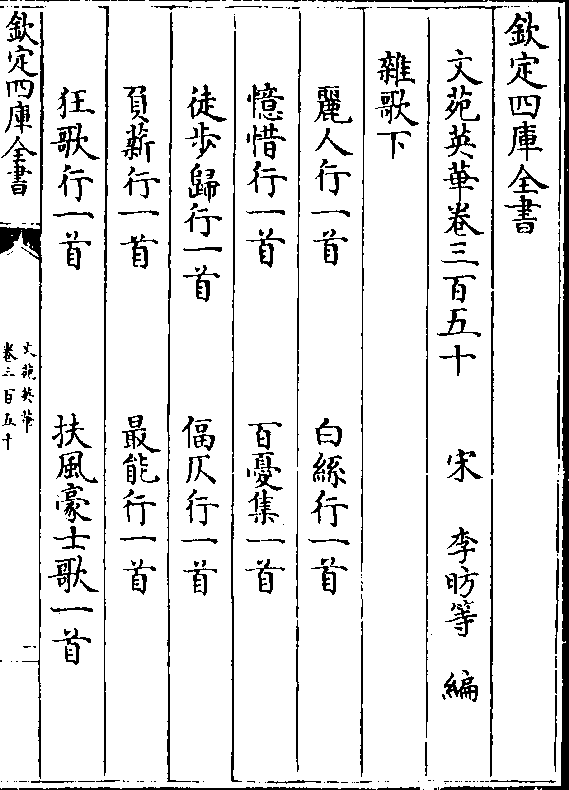 欽定四庫全書
文苑英華卷三百五十 宋 李昉等 編
雜歌下
麗人行一首 白絲行一首
憶惜行一首 百憂集一首
徒步歸行一首 偪仄行一首
負薪行一首 最能行一首
狂歌行一首 扶風豪士歌一首
欽定四庫全書
文苑英華
卷三百五十
一